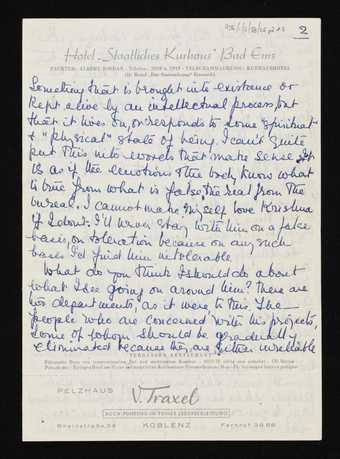 2
Hotel „Staatliches Kurhaus" Bad Ems
PÄCHTER: ALBERT JORDAN
something that is brought into existence or
kept alive by an intellectual process but
that it lives on, or responds to some spiritual
+ "physical" state of being. I can't quite
put this into words that make sense. It
is as if the emotions & the body know what
is true from what is false, the real from the
unreal. I cannot make myself love Krishna
if I don't. I'll never stay with him on a false
basis, on toleration because on any such
basis I'd find him intolerable
What do you think I should do about
what I see going on around him? There are
two departments, as it were, to this. The
people who are concerned with his projects,
some of whom should be gradually
eliminated because they are either unreliable
PELZHAUS
V. Traxel
KOBLENZ